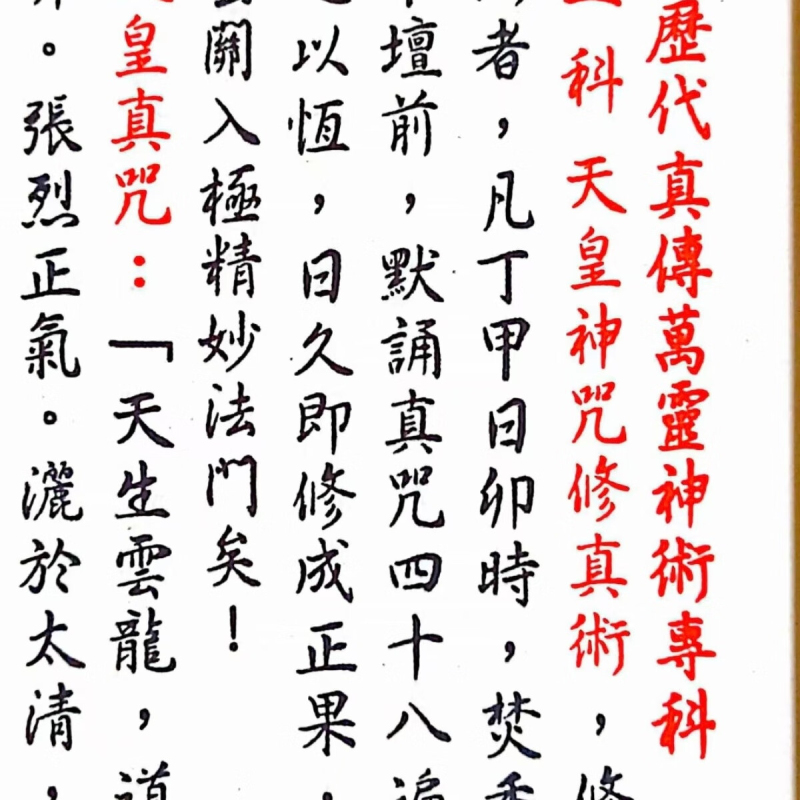 歷代真傳萬靈神術專科
科 天皇神咒修真術，修
者，凡丁甲日卯時，焚香
壇前，默誦真咒四十八遍
以恆，日久即修成正果，
關入極精妙法門矣！
皇真咒：「天生雲龍，道
。張烈正氣。灑於太清，